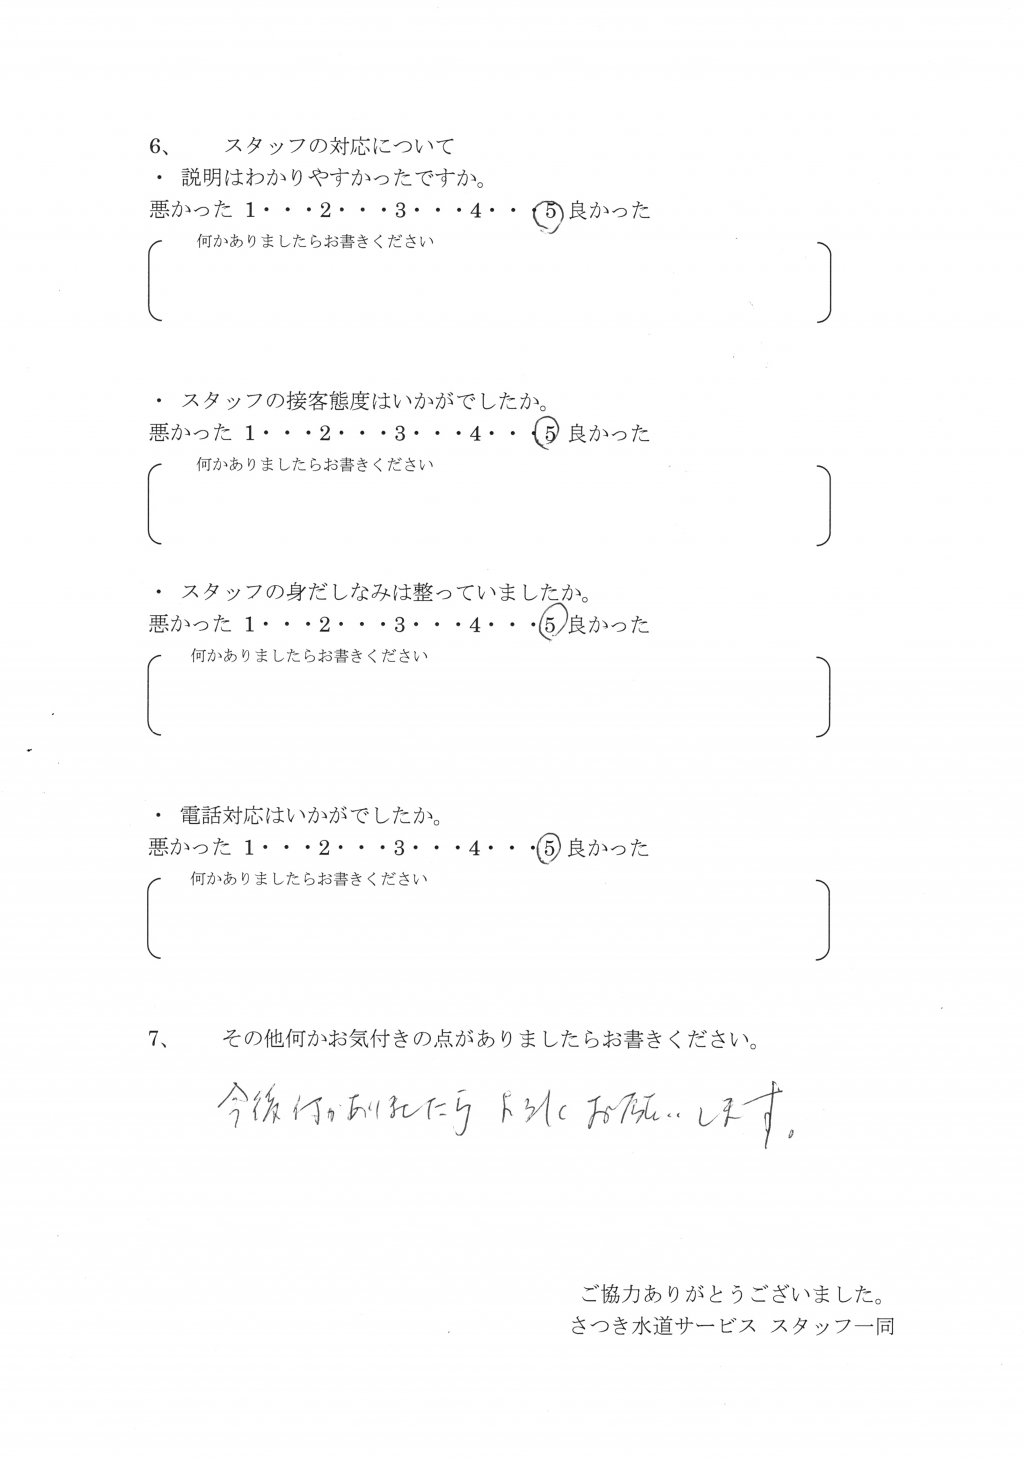 6、 スタッフの対応について
・ 説明はわかりやすかったですか。
悪かった 1・・・2・・・3・・・4・・・5 良かった
何かありましたらお書きください
・ スタッフの接客態度はいかがでしたか。
悪かった 1・・・2・・・3・・・4・・・5 良かった
何かありましたらお書きください
・ スタッフの身だしなみは整っていましたか。
悪かった 1・・・2・・・3・・・4・・・5 良かった
何かありましたらお書きください
・ 電話対応はいかがでしたか。
悪かった 1・・・2・・・3・・・4・・・5 良かった
何かありましたらお書きください
7、 その他何かお気付きの点がありましたらお書きください。
今後何かありましたらよろしくお願いします。
ご協力ありがとうございました。
さつき水道サービス スタッフ一同